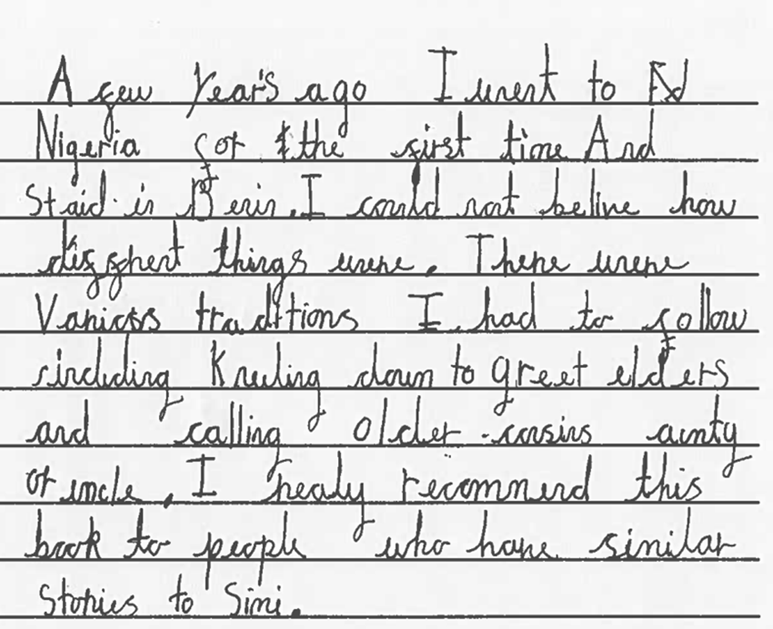 A few Year's ago I went to
Nigeria for the first time And
Staid in Benin. I could not belive how
diffrent things were. There were
Various traditions I had to follow
including Kneeling down to greet elders
and calling older cousins aunty
or uncle. I realy recommend this
book to people who have similar
Stories to Simi.